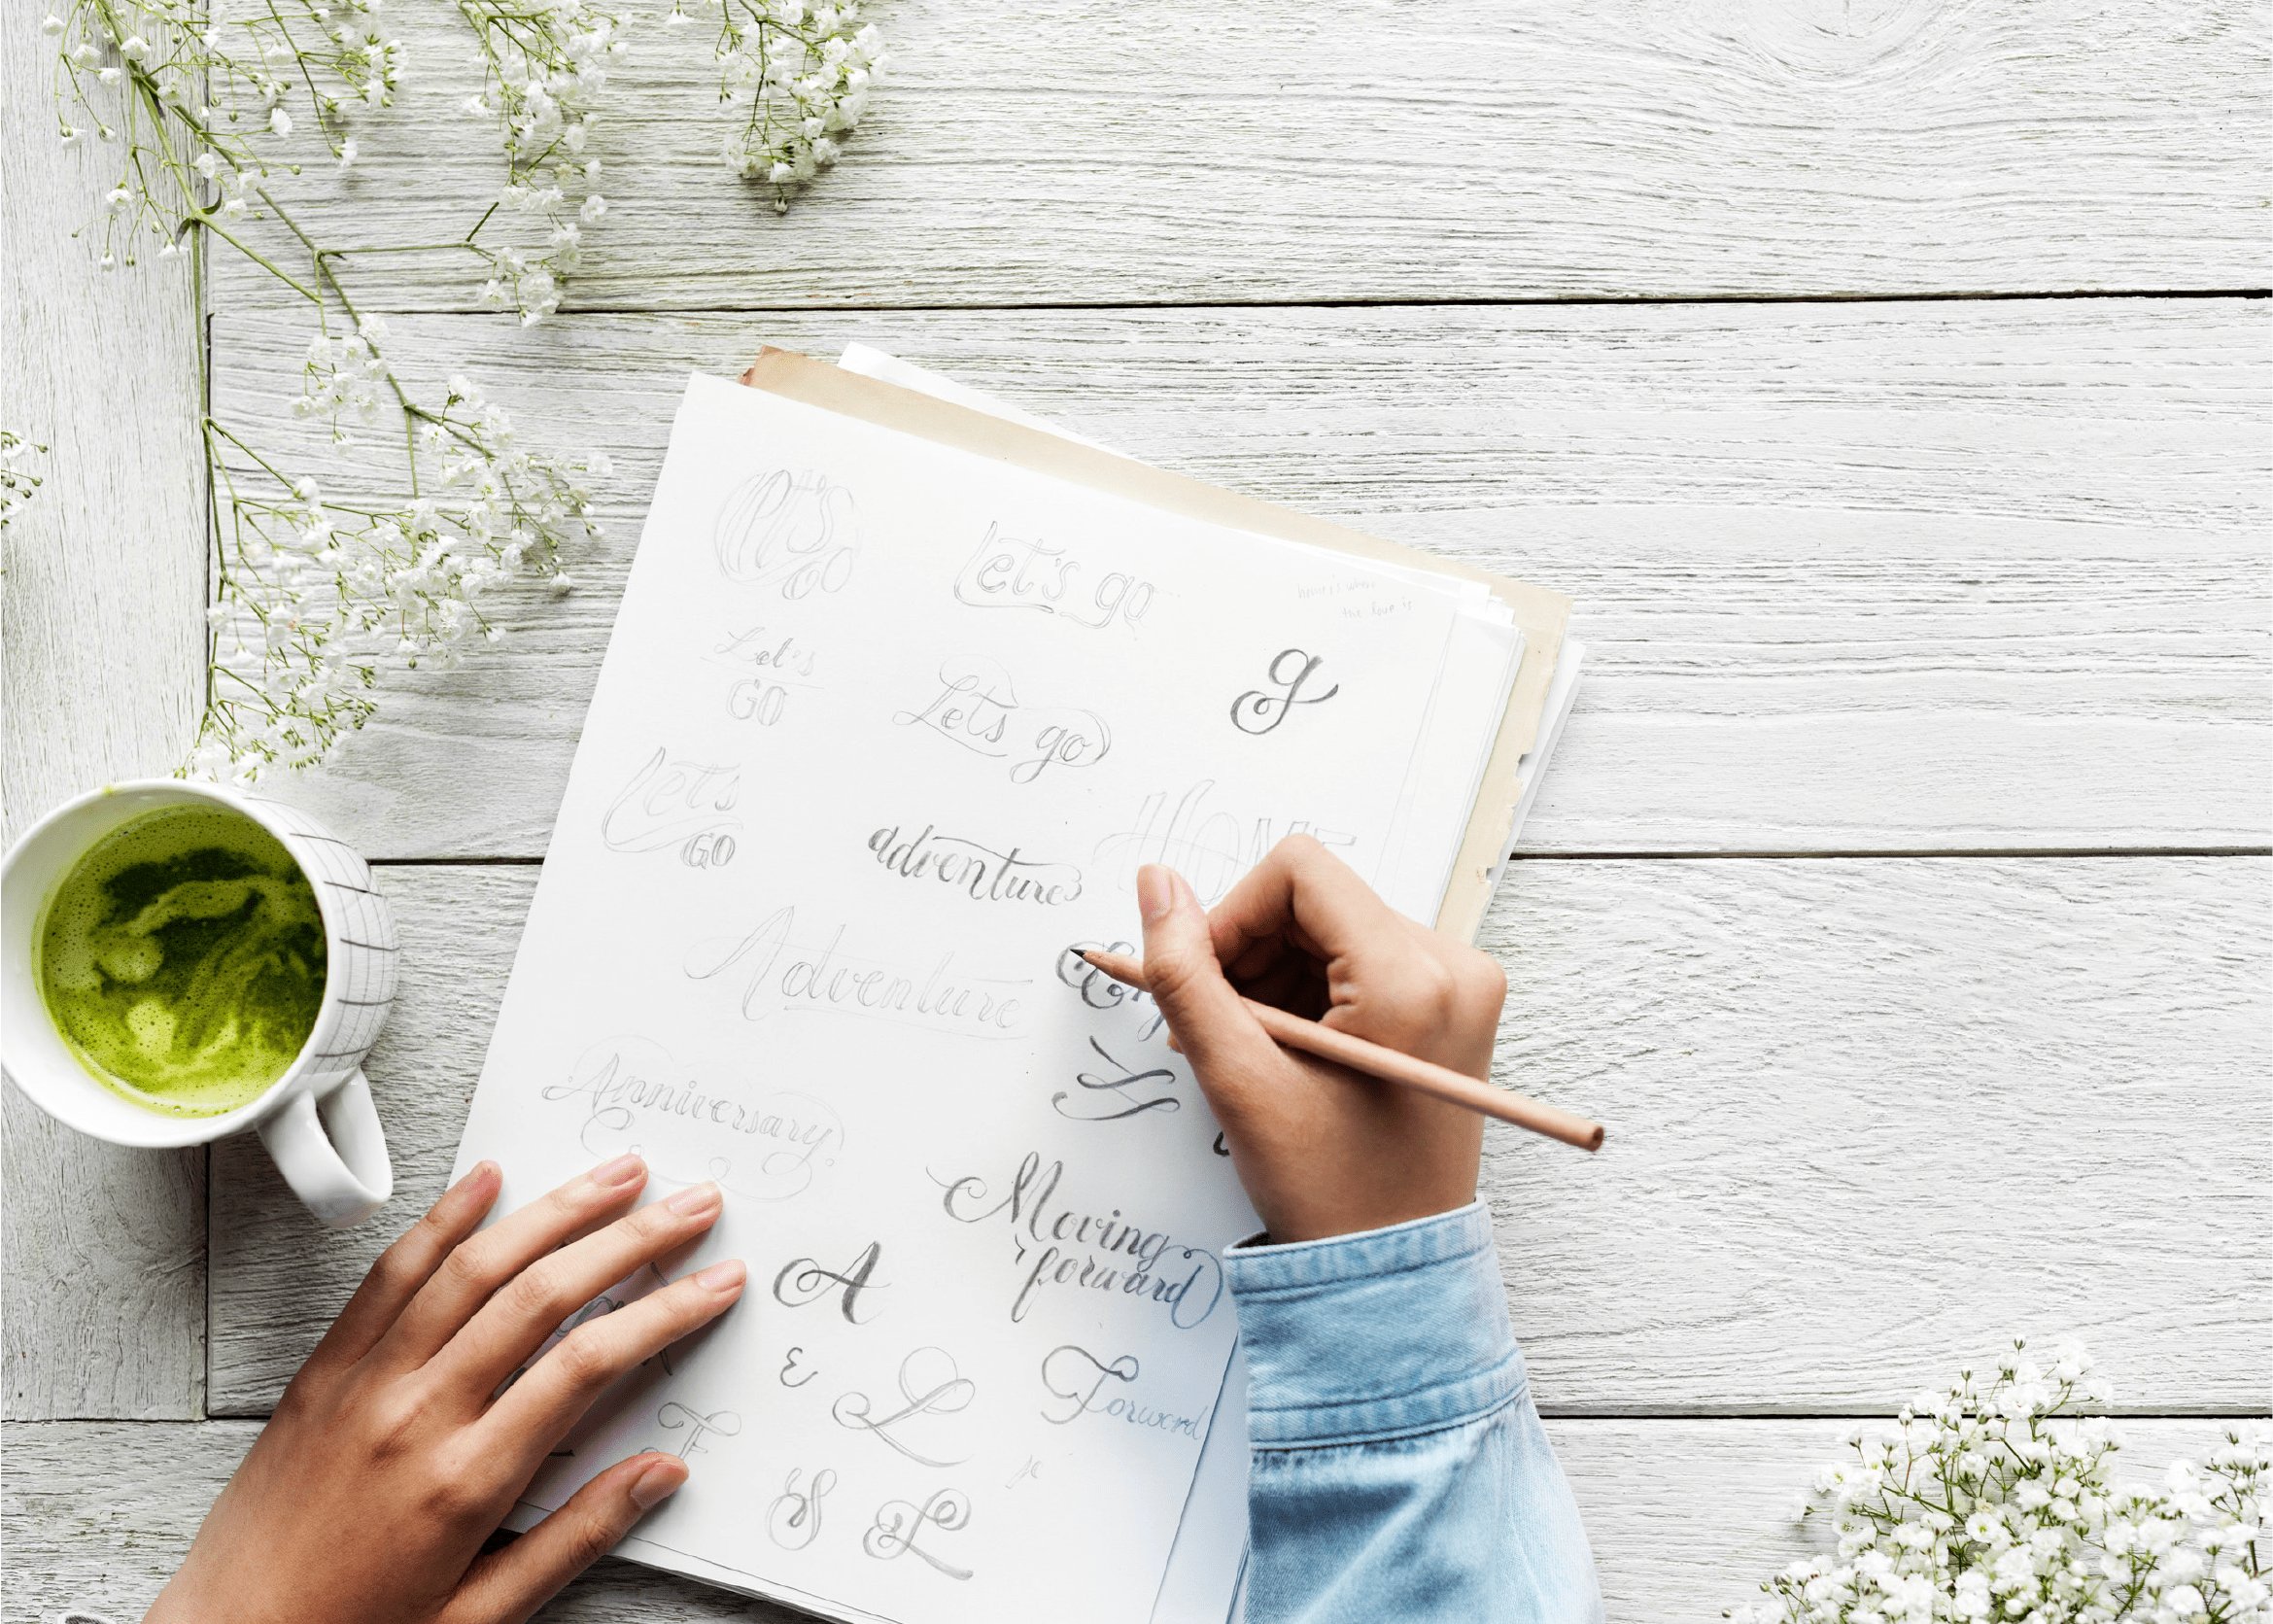 Let's
go
Let's go
home's where
the love is
Let's
GO
Let's go
g
Let's
GO
adventure
HOME
Adventure
Anniversary
Moving
forward
A
E
L
Forward
F
S
L